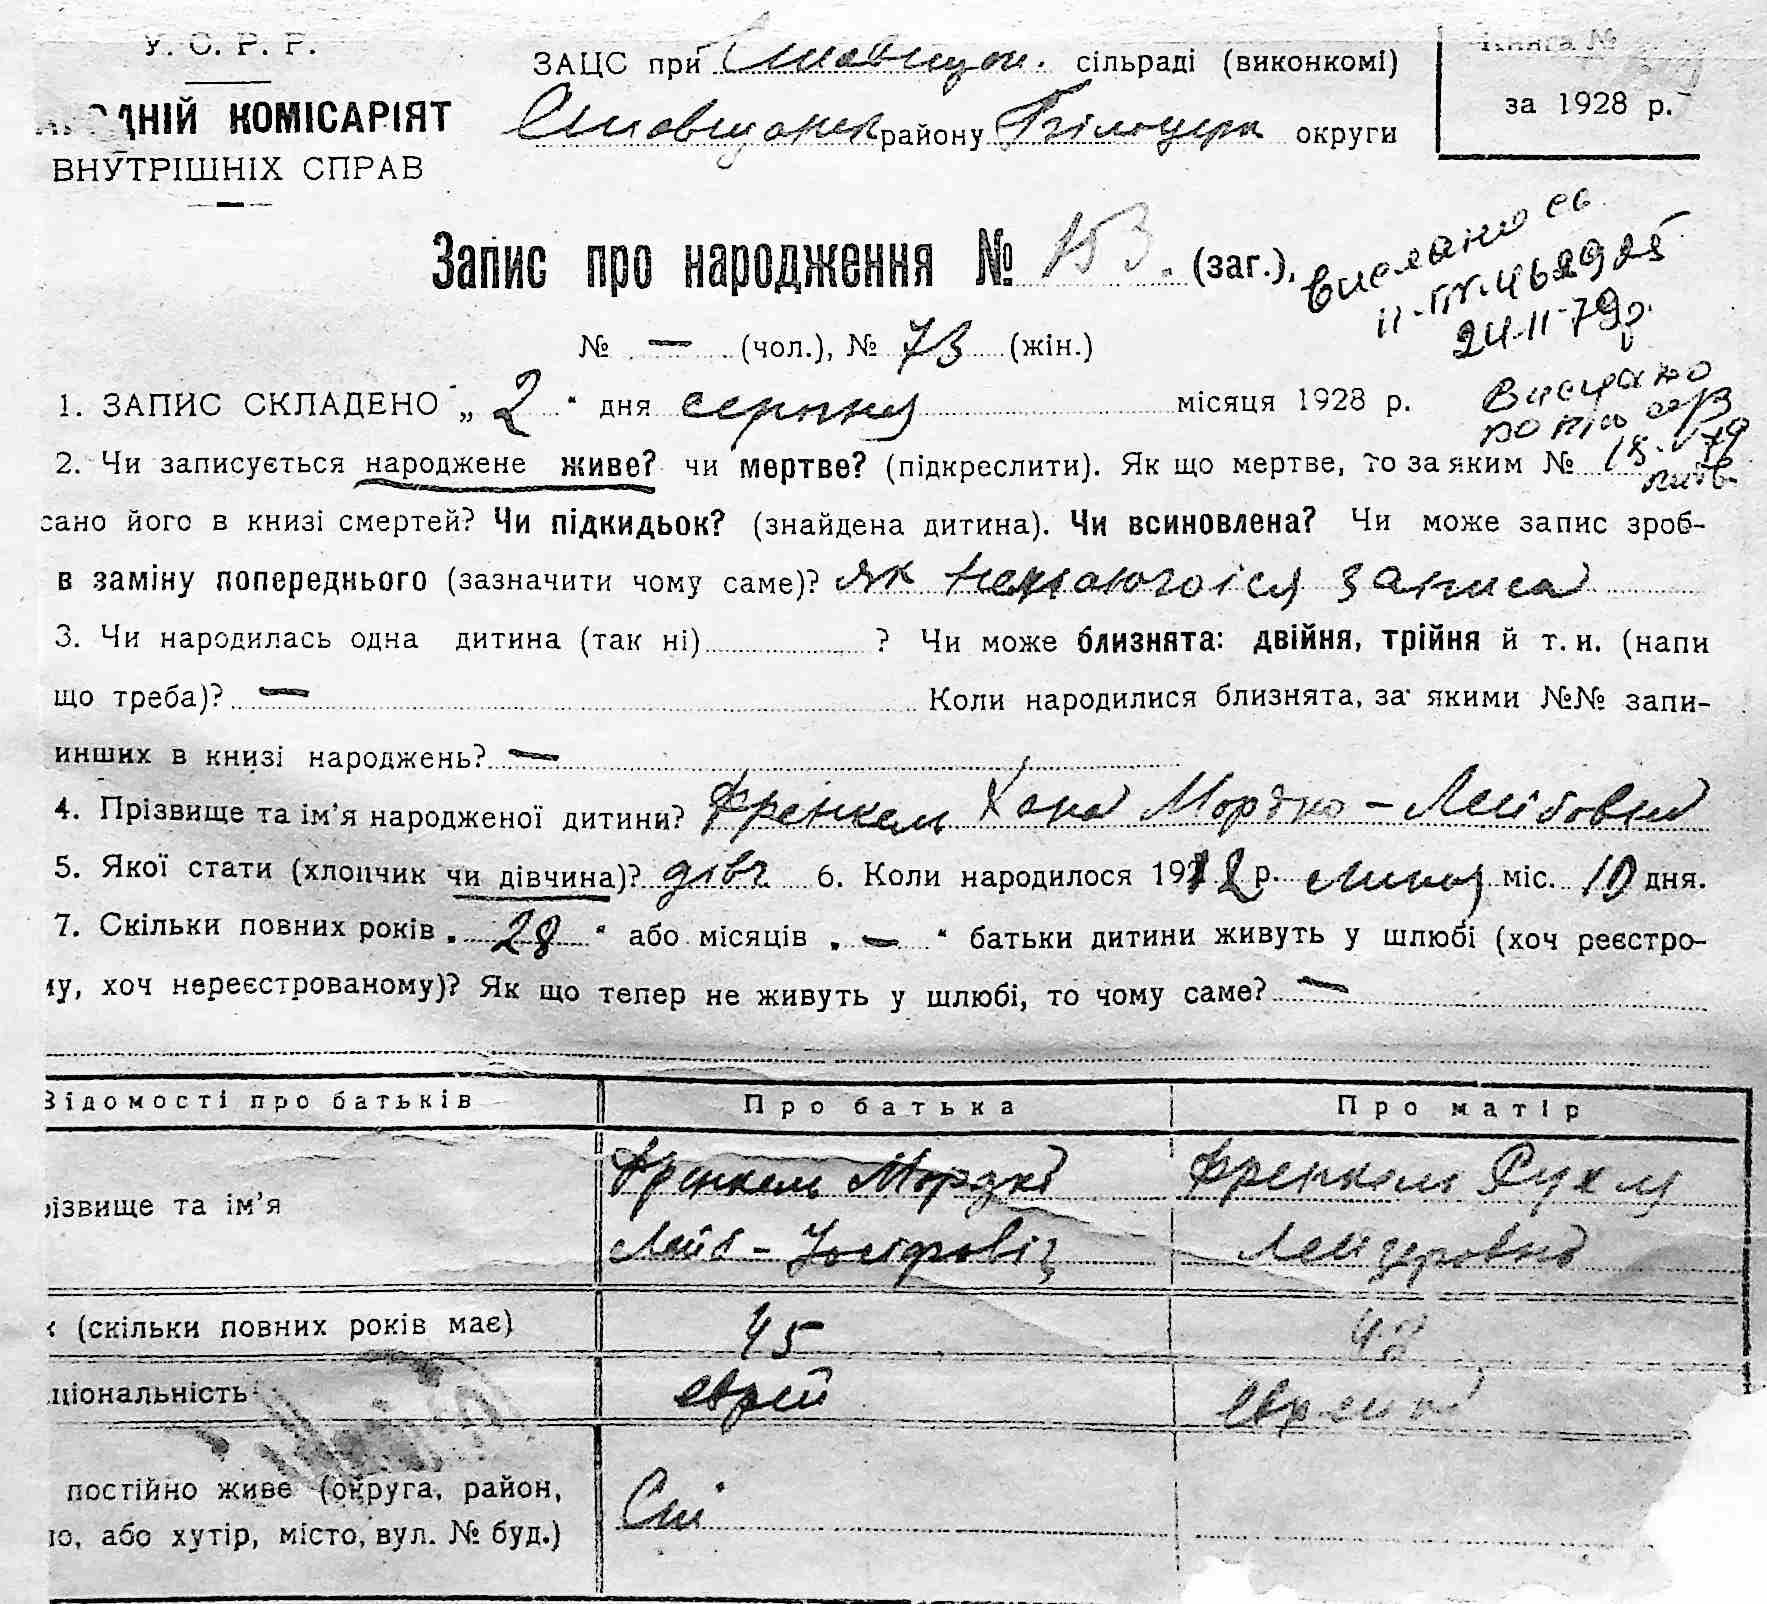 У. С. Р. Р.
ЗАЦС при сільраді (виконкомі)
району Білоцерк округи
Книга №
за 1928 р.
ДНІЙ КОМІСАРІЯТ
ВНУТРІШНІХ СПРАВ
Запис про народження № 153. (заг.),
№ — (чол.), № 73 (жін.)
24-II-79р.
1. ЗАПИС СКЛАДЕНО „ 2 “ дня серпня місяця 1928 р.
2. Чи записується народжене живе? чи мертве? (підкреслити). Як що мертве, то за яким №
сано його в книзі смертей? Чи підкидьок? (знайдена дитина). Чи всиновлена? Чи може запис зроб-
в заміну попереднього (зазначити чому саме)? як записа
3. Чи народилась одна дитина (так ні) ? Чи може близнята: двійня, трійня й т. и. (напи
що треба)? — Коли народилися близнята, за якими №№ запи-
инших в книзі народжень? —
4. Прізвище та ім’я народженої дитини? Френкель Хана Мордко-Лейбовна
5. Якої стати (хлопчик чи дівчина)? дівч. 6. Коли народилося 1912 р. липня міс. 10 дня.
7. Скільки повних років „ 28 “ або місяців „ — “ батьки дитини живуть у шлюбі (хоч реєстро-
му, хоч нереєстрованому)? Як що тепер не живуть у шлюбі, то чому саме? —
Відомості про батьків Про батька Про матір
різвище та ім’я
Френкель Мордко Френкель Рухля
Лейб-Йосіфовіч Лейзеровна
к (скільки повних років має) 45 48
ціональність еврей еврейка
постійно живе (округа, район,
ло, або хутір, місто, вул. № буд.)